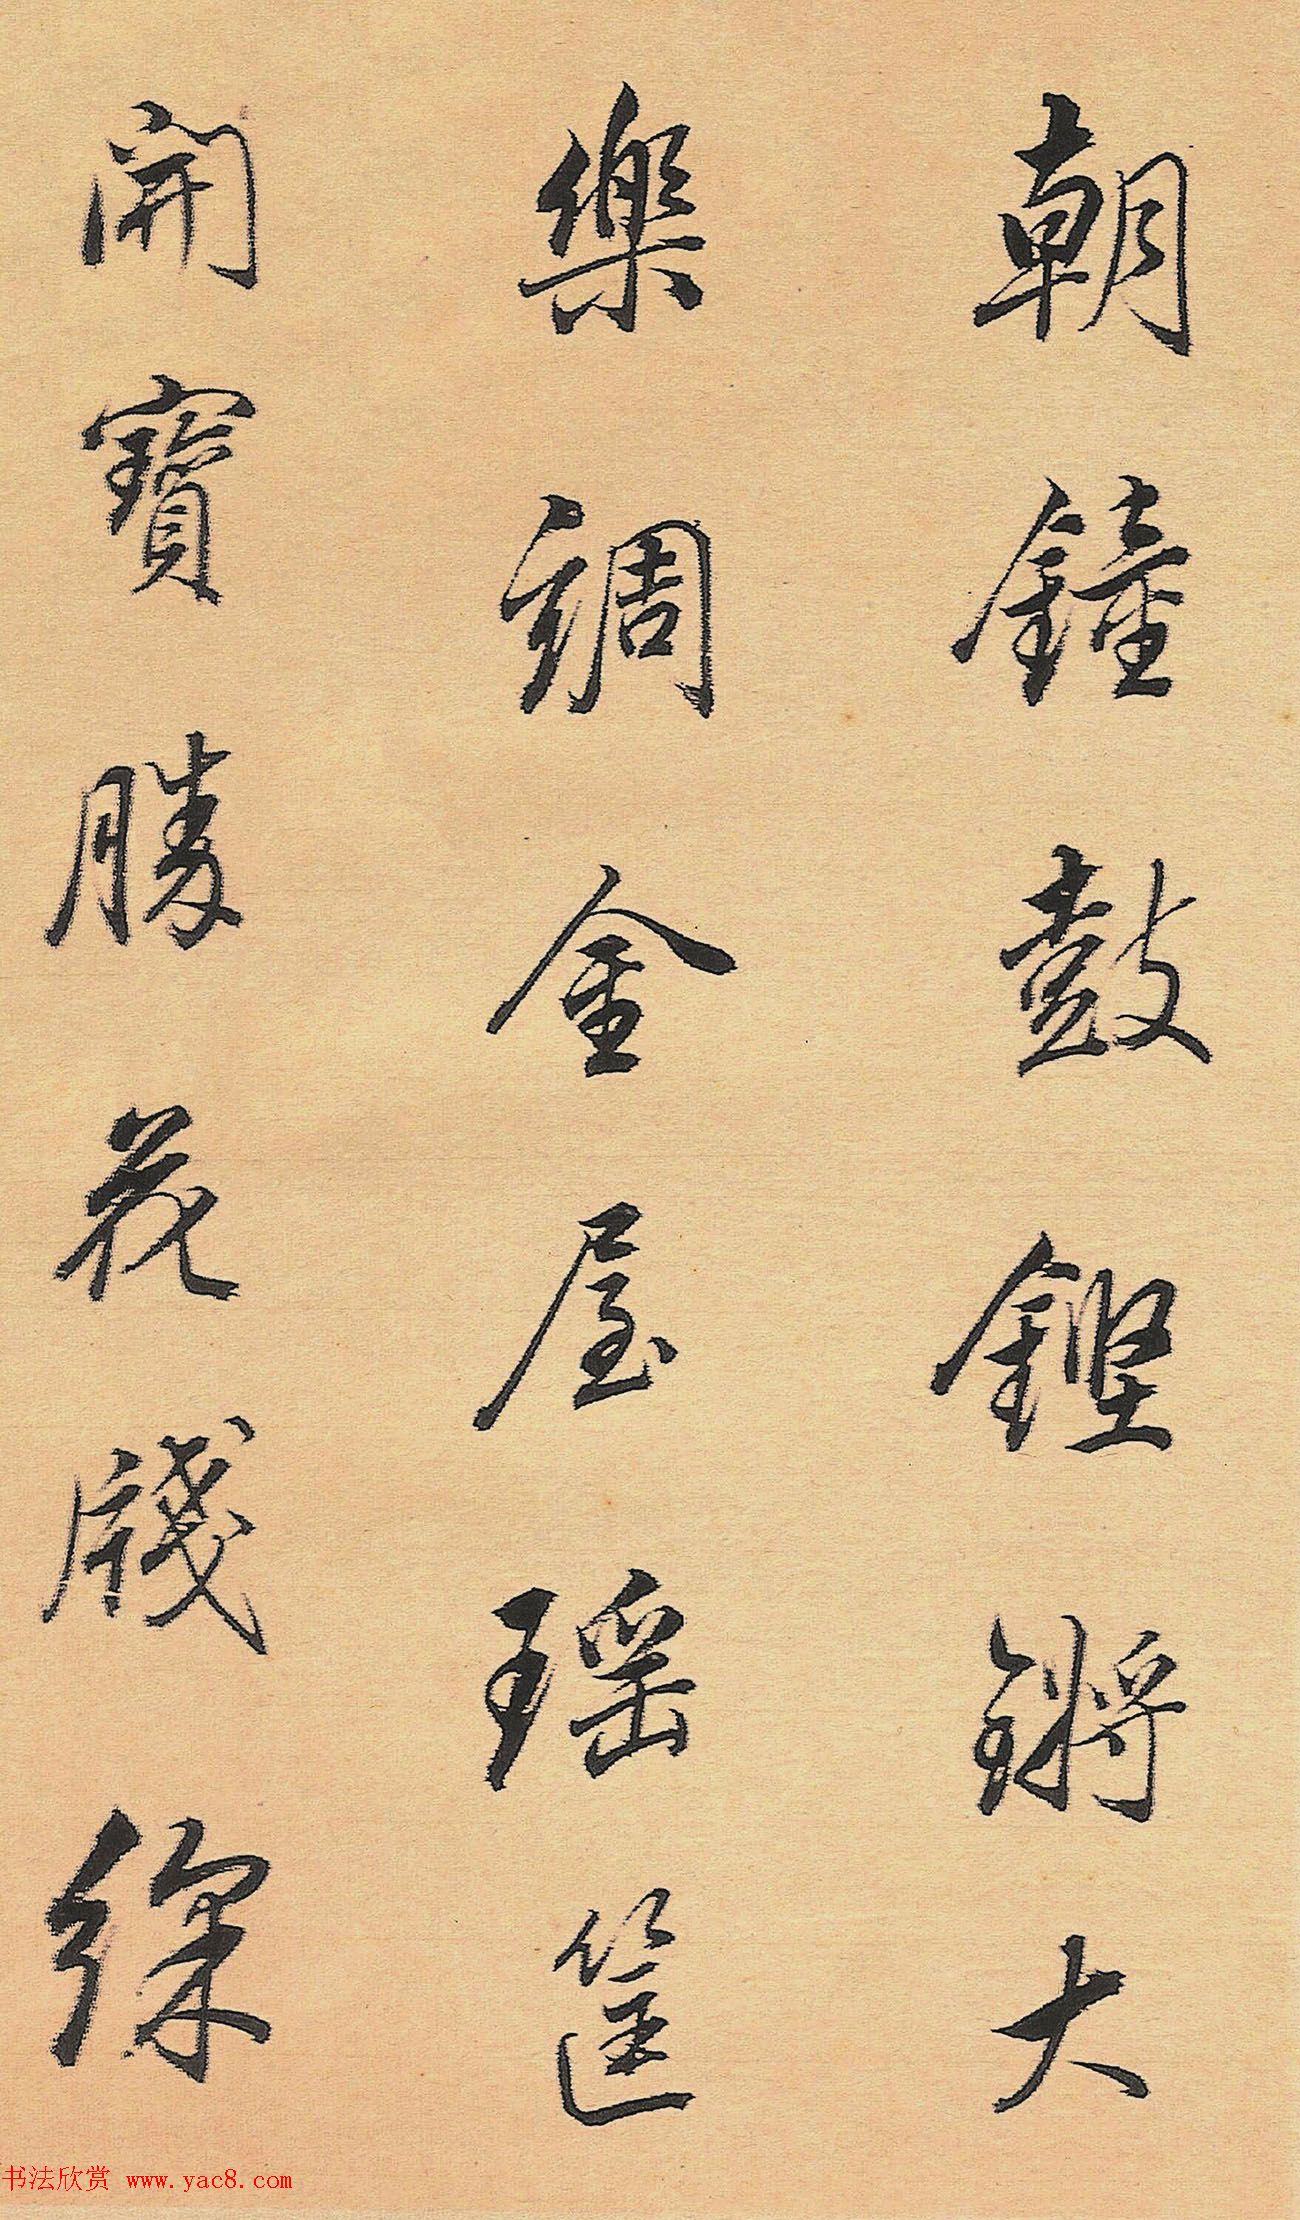 朝鐘鼓鏗鏘大
樂調金屋瑤筐
開寶勝花牋綵
书法欣赏 www.yac8.com